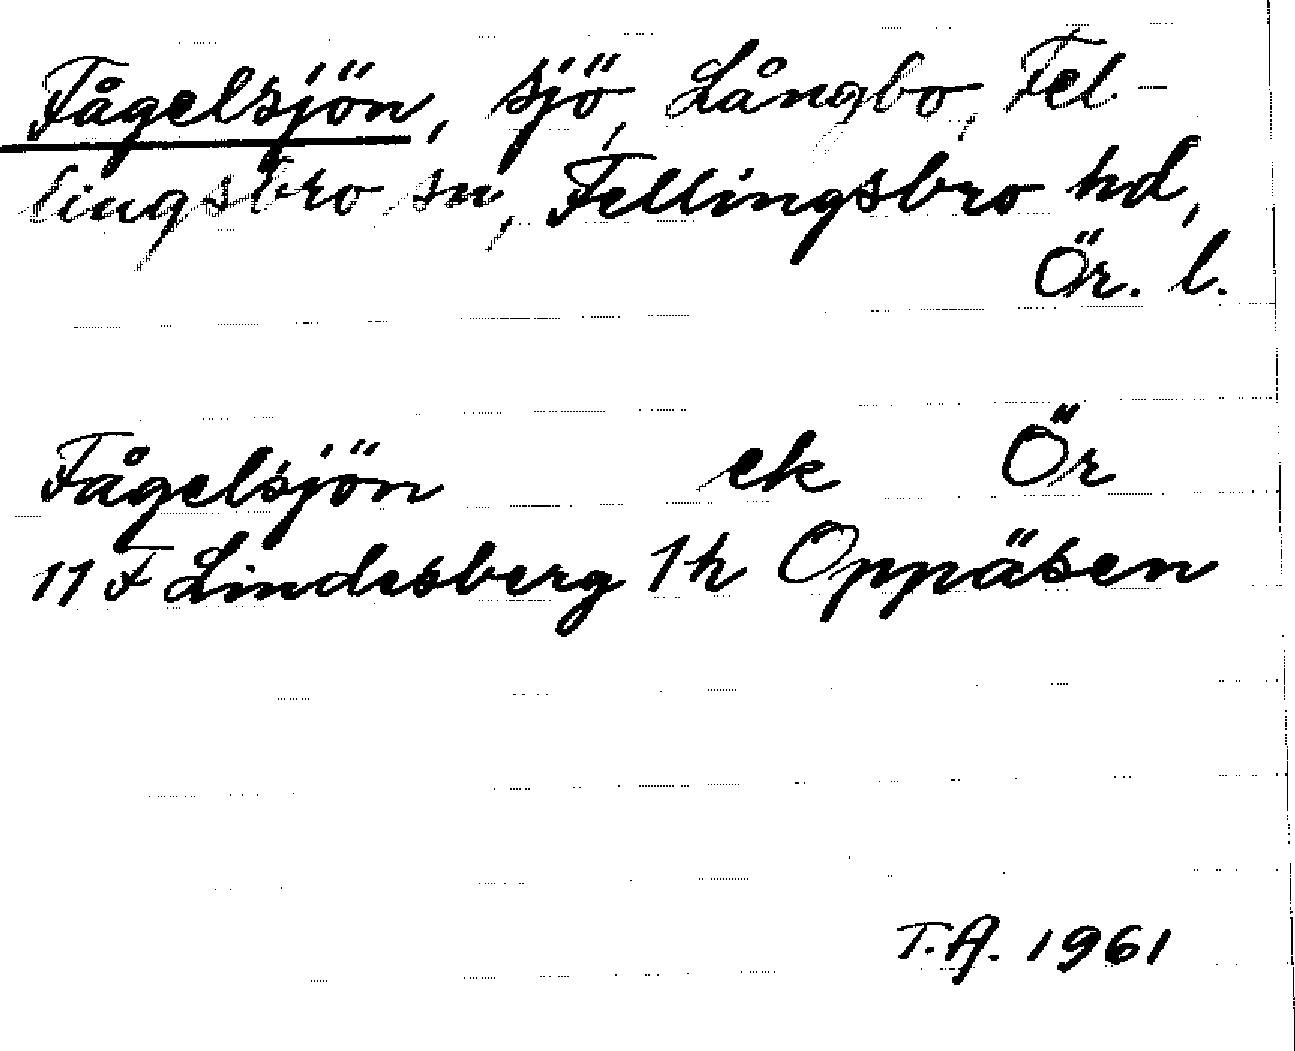 Fågelsjön, sjö, Långbo, Fel-
lingsbro sn, Fellingsbro hd,
Ör. l.
Fågelsjön ek Ör
11 F Lindesberg 1 h Oppåsen
T.A. 1961